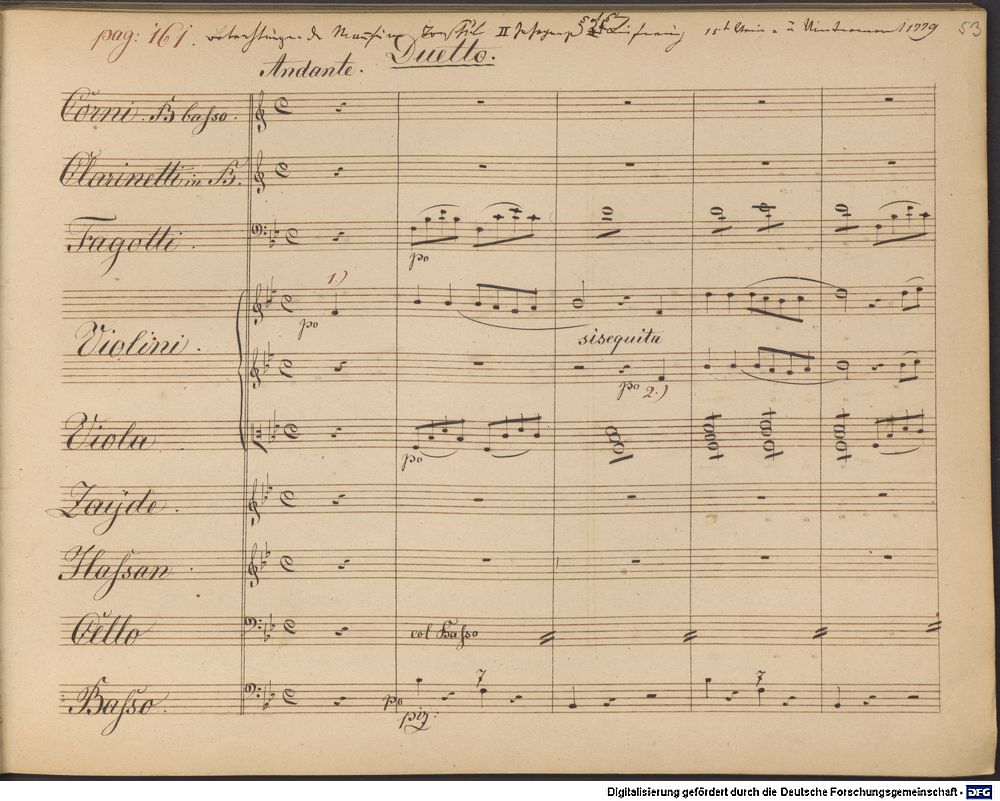 pag: 161. II 1779 53
Duetto.
Andante.
Corni. B basso.
Clarinetti in B.
Fagotti.
po
1.)
po
Violini.
sisequita
po 2.)
Viola
po
Zaÿde.
Hassan
Cello
col Basso
7 7
Basso.
po
piz:
Digitalisierung gefördert durch die Deutsche Forschungsgemeinschaft - DFG